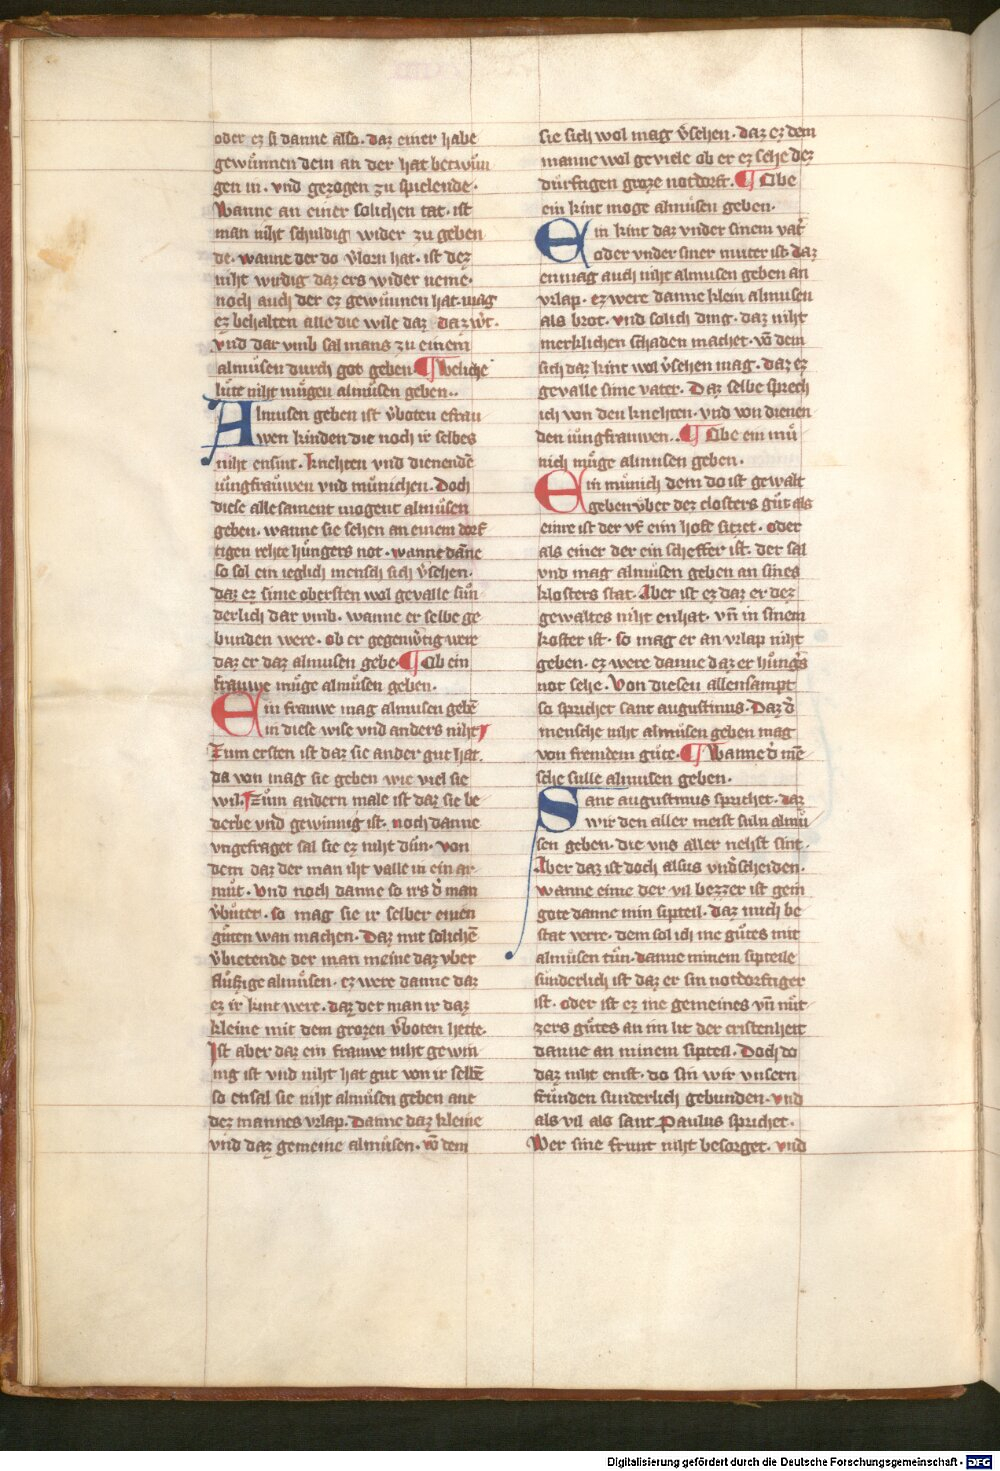 oder ez si danne also · daz einer habe
gewůnnen dem an der hat betwůn
gen in · vnd gezogen zu spielende ·
Wanne an einer solichen tat · ist
man niht schuldig wider zu geben
de · wanne der do v̓lorn hat · ist dez
niht wirdig daz ers wider neme ·
noch auch der ez gewůnnen hat · mag
ez behalten alle die wile daz daz w̓t ·
vnd dar vmb sal mans zu einem
almůsen durch got geben ¶ Weliche
lůte niht můgen almůsen geben ··
Almusen geben ist v̓boten efrau
wen kinden die noch ir selbes
niht ensint · knehten vnd dienendē
iůngfraůwen vnd můnichen · Doch
diese alle sament mogent almůsen
geben · wanne sie sehen an einem dorf
tigen rehte hůngers not · wanne dāne
so sol ein ieglich mensch sich v̓sehen ·
daz ez sime obersten wol gevalle sůn
derlich dar vmb · wanne er selbe ge
bunden were · ob er gegenw̓tig were
daz er daz almusen gebe · ¶ Ob ein
frauwe můge almůsen geben ·
Ein frauwe mag almusen gebē
in diese wise vnd anders niht
Zum ersten ist daz sie ander gut hat ·
da von mag sie geben wie viel sie
wil · Zům andern male ist daz sie be
derbe vnd gewinnig ist · noch danne
vngefraget sal sie ez niht důn · von
dem daz der man iht valle in ein ar
můt · Vnd noch danne so irs d̓ man
v̓bůtet · so mag sie ir selber einen
gůten wan machen · Daz mit solichē
v̓bietende der man meine daz vber
flůßige almůsen · ez were danne daz
ez ir kint were · daz der man ir daz
kleine mit dem grozen v̓boten hette ·
Ist aber daz ein frauwe niht gewin
nig ist vnd niht hat gut von ir selbē
so ensal sie niht almůsen geben ane
dez mannes vrlap · Danne daz kleine
vnd daz gemeine almůsen · vō dem
sie sich wol mag v̓sehen · daz ez dem
manne wol geviele ob er ez sehe dez
důrftigen groze notdorft · ¶ Obe
ein kint moge almůsen geben ·
Ein kint daz vnder sinem vat̓
oder vnder siner můter ist · daz
enmag auch niht almusen geben an
vrlap · ez were danne klein almusen
als brot · vnd solich ding · daz niht
merklichen schaden machet · vō dem
sich daz kint wol v̓sehen mag · daz ez
gevalle sime vater · Daz selbe sprech
ich von den knehten · vnd von dienen
den iůngfrauwen ·· ¶ Obe ein mů
nich můge almůsen geben ·
Ein můnich dem do ist gewalt
geben v̓ber dez closters gůt als
eime ist der vf eim hofe sitzet · oder
als einer der ein scheffer ist · der sal
vnd mag almůsen geben an sines
klosters stat · Aber ist ez daz er dez
gewaltes niht enhat · vn̄ in sinem
koster ist · so mag er an vrlap niht
geben · ez were danne daz er hůng̓s
not sehe · Von diesen allensampt
so sprichet sant augustinus · Daz d̓
mensche niht almůsen geben mag
von fremdem gůte · ¶ Wanne d̓ mē
sche sulle almusen geben ·
Sant augustinus sprichet · daz
wir den aller meist suln almů
sen geben · die vns aller nehst sint ·
Aber daz ist doch alsus vnd̓scheiden ·
wanne eime der vil bezzer ist gein
gote danne min sipteil · daz mich be
stat verre · dem sol ich me gůtes mit
almůsen tůn · danne minem sipteile
sůnderlich ist daz er sin notdorftiger
ist · oder ist ez me gemeines vn̄ nůt
zers gůtes an im lit der cristenheit
danne an minem sipteil · Doch do
daz niht enist · do sin wir vnsern
frůnden sunderlich gebunden · vnd
als vil als sant Paulus sprichet ·
Wer sine frunt niht besorget · vnd
Digitalisierung gefördert durch die Deutsche Forschungsgemeinschaft - DFG